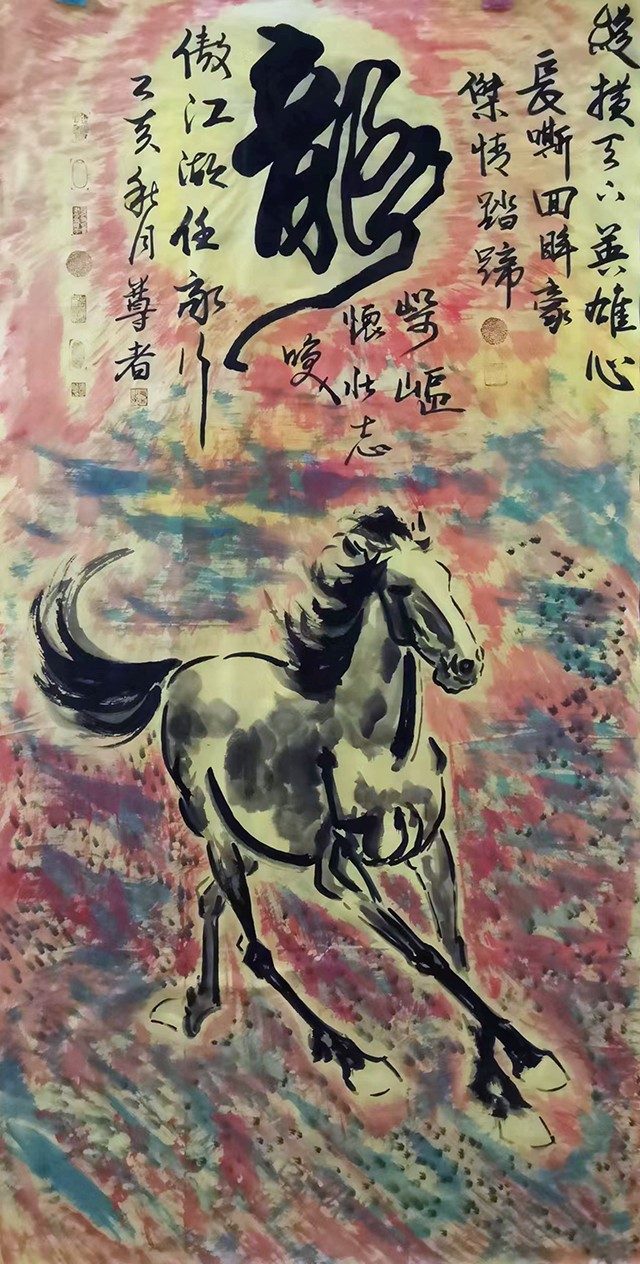 縱橫天下英雄心
長嘶回眸豪
傑情踏蹄
嶇
懷壯志
龍
傲江湖任行
己亥秋月尊者